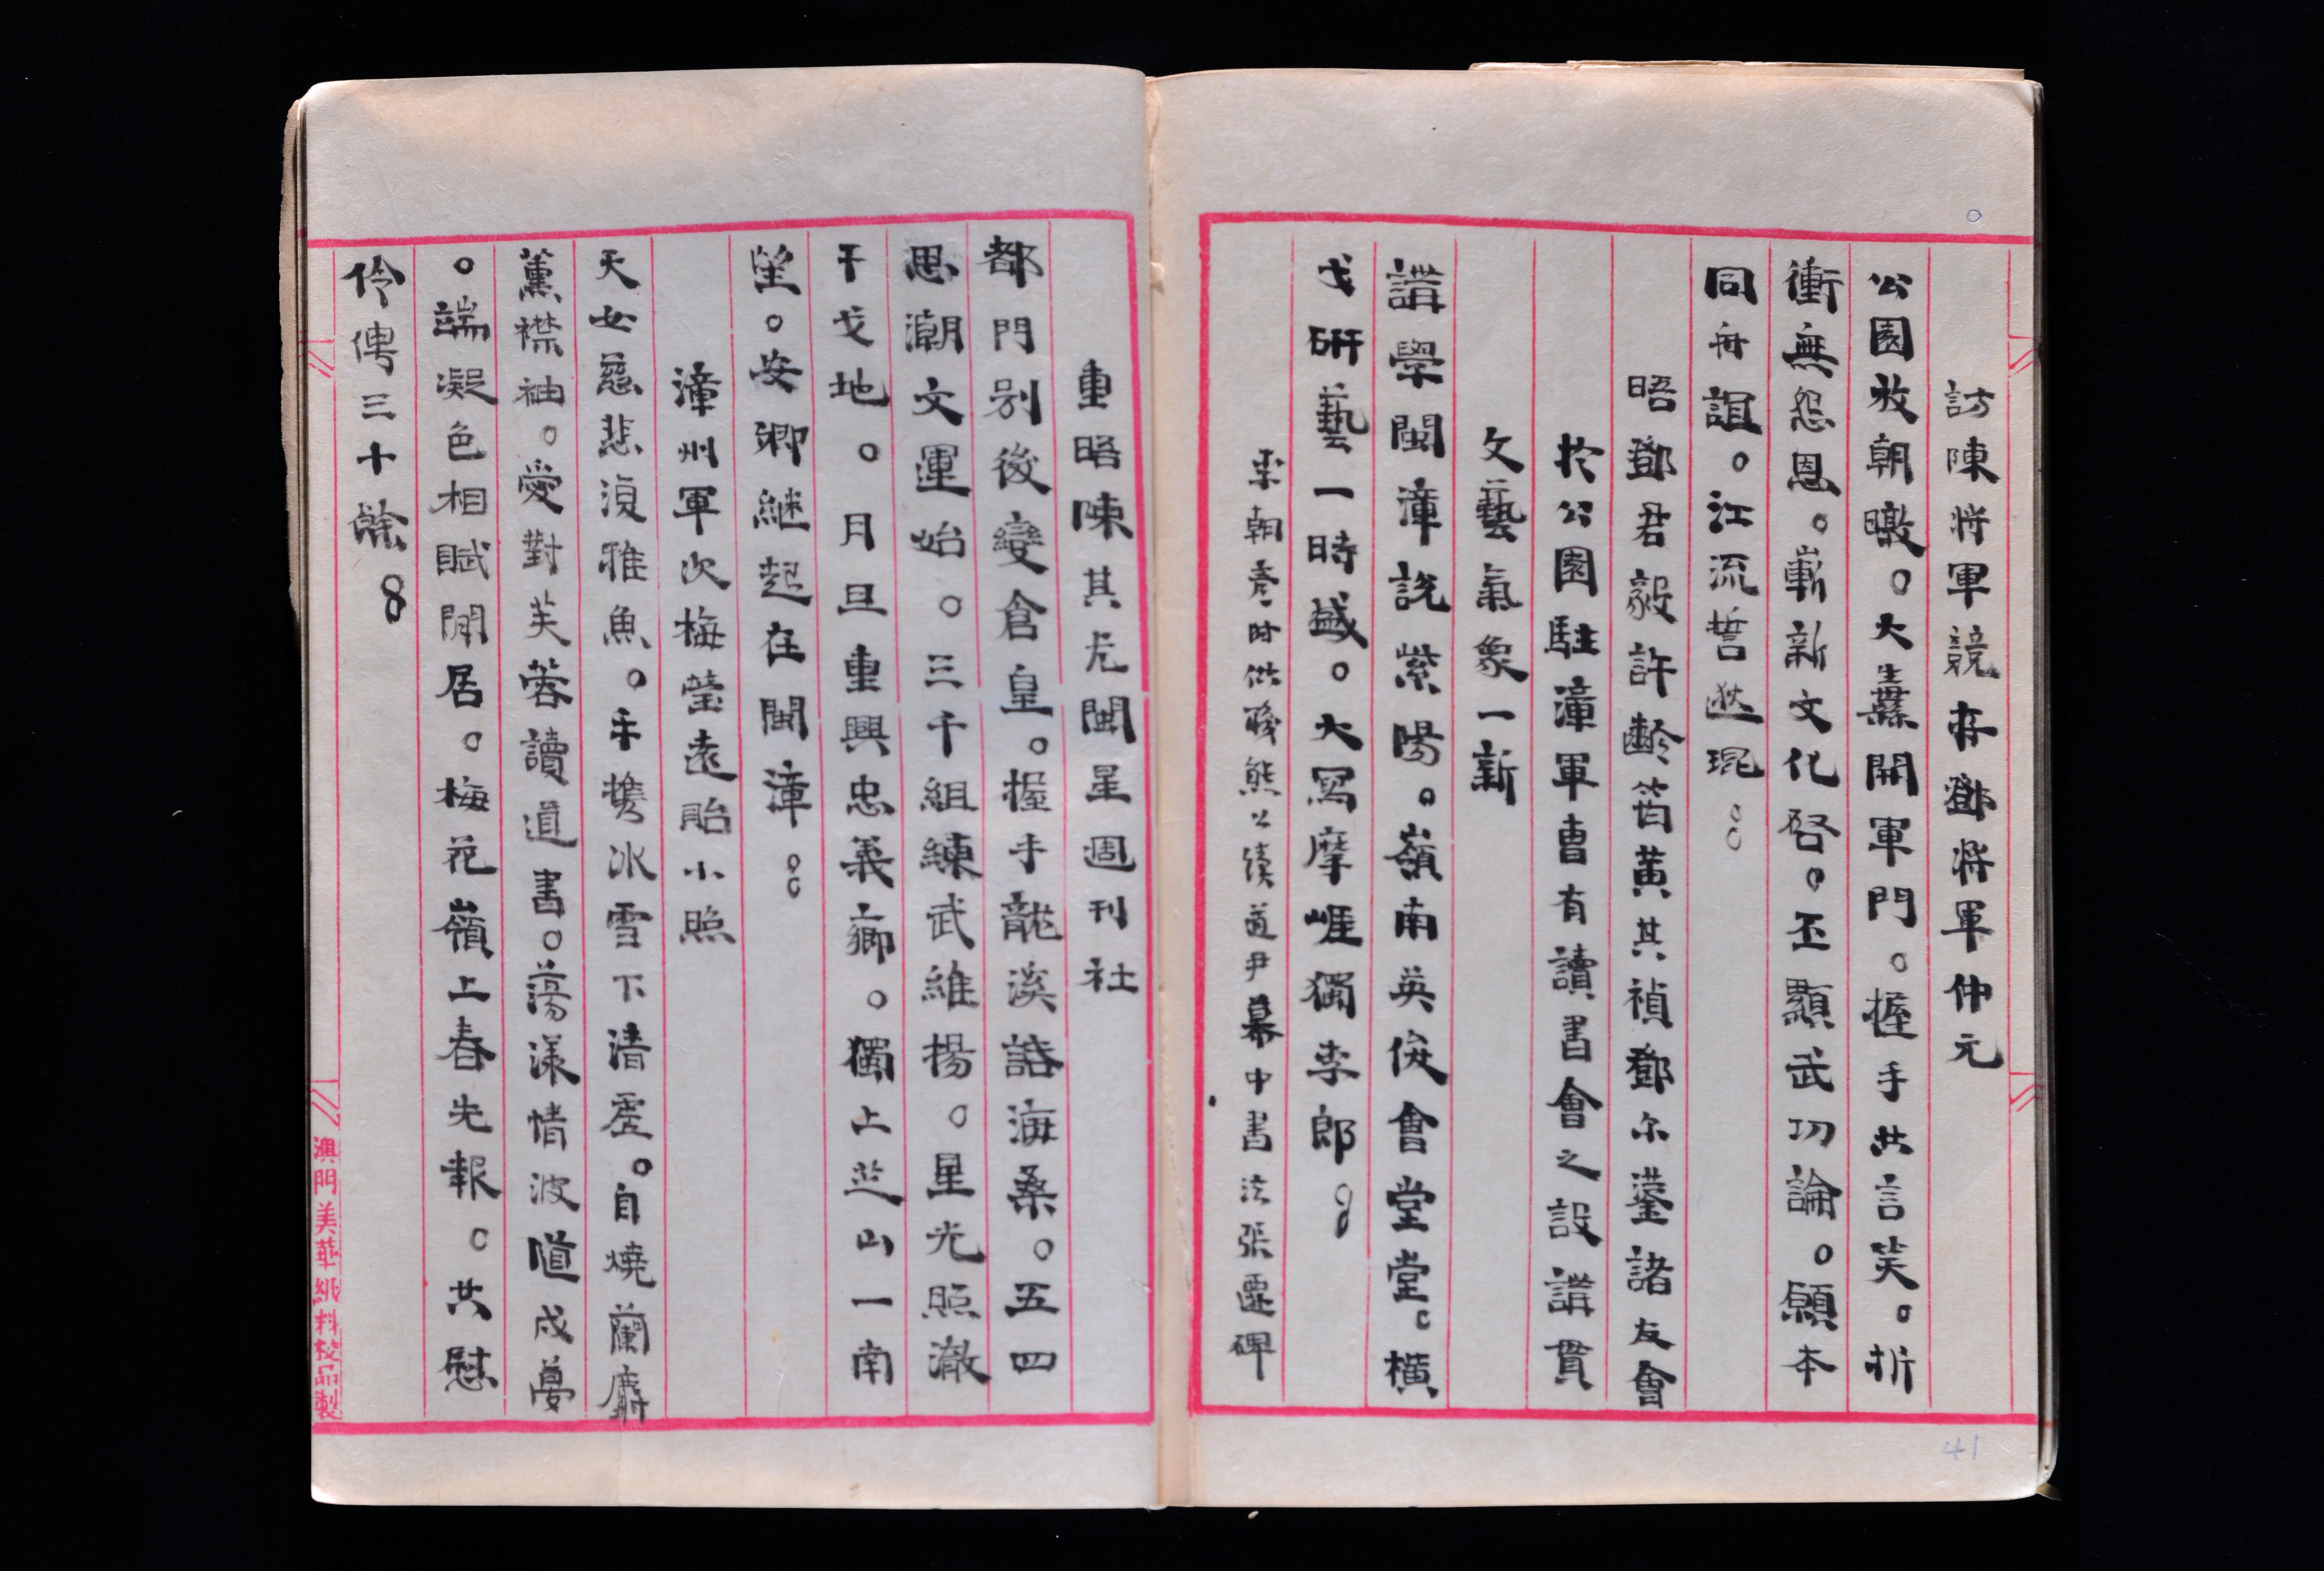 訪陳將軍競存鄧將軍仲元
公園放朝暾。大纛開軍門。握手共言笑。折
衝無怨恩。嶄新文化啓。丕顯武功論。願本
同舟誼。江流誓逖琨。
晤鄧君毅許齡筠黃其禎鄧尔鎏諸友會
於公園駐漳軍曹有讀書會之設講貫
文藝氣象一新
講學閩漳説紫陽。嶺南英俊會堂堂。橫
戈硏藝一時盛。大寫摩崖獨李郎。
李朝彥時供職熊公續道尹幕中書法張遷碑
重晤陳其尤閩星週刊社
都門别後變倉皇。握手龍溪話海桑。五四
思潮文運始。三千組練武維揚。星光照澈
干戈地。月旦重興忠義鄉。獨上芝山一南
望。安卿継起在閩漳。
漳州軍次梅瑩遠貽小照
天女慈悲湏雅魚。手攜冰雪下清虛。自燒蘭麝
薰襟袖。愛對芙蓉讀道書。蕩漾情波道成憂
。端凝色相賦閒居。梅花嶺上春先報。共慰
伶俜三十餘
澳門美華紙料校品製
41